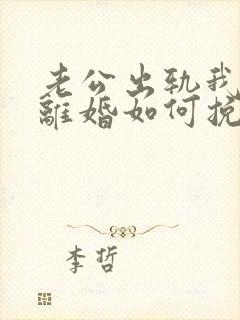 老公出轨我
離婚如何挽
李哲